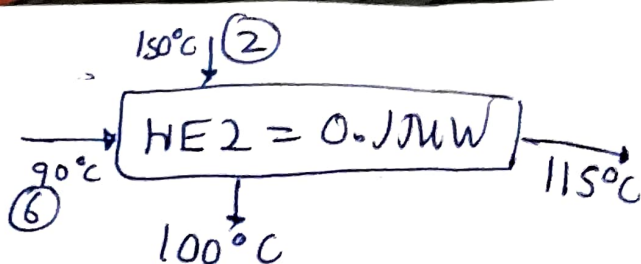 150°C ②
HE2 = 0.1MW
90°C
115°C
⑥
100°C